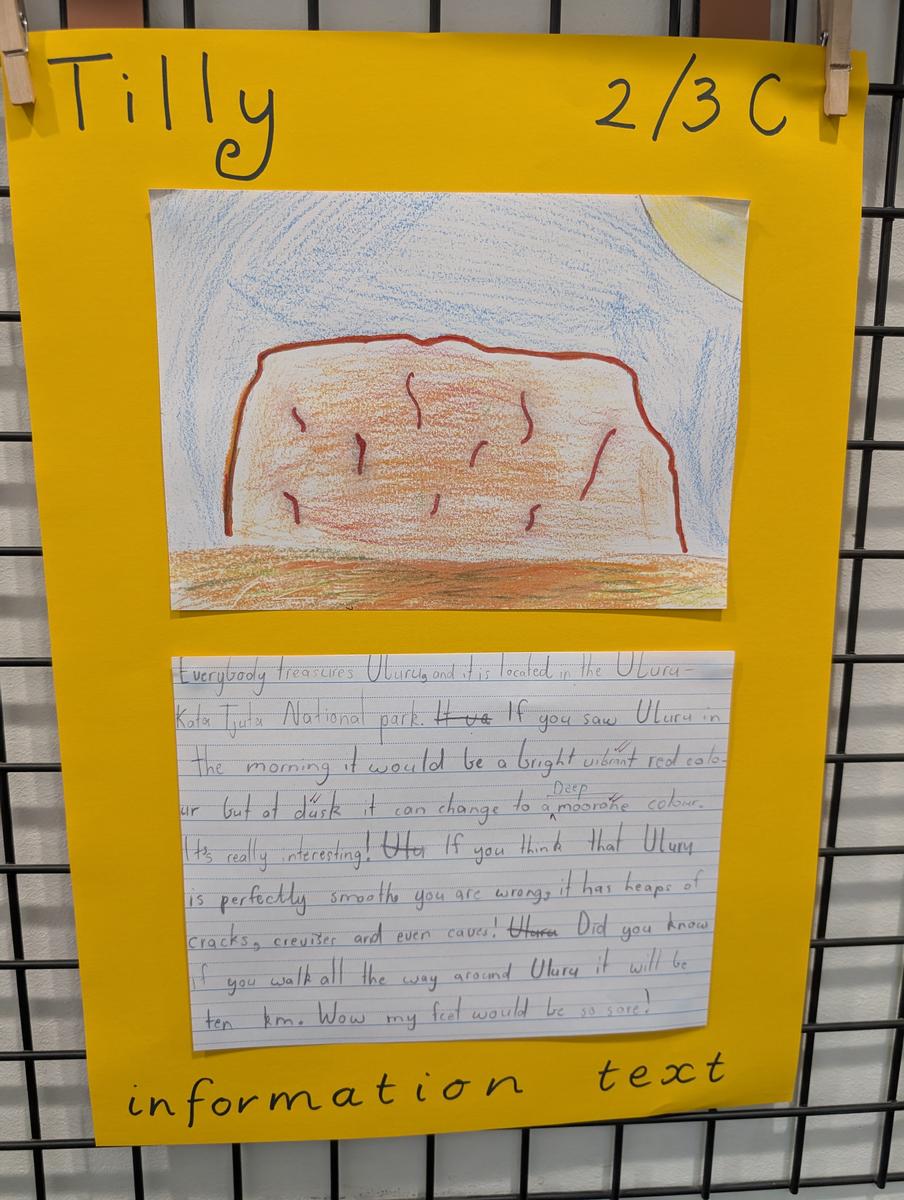 Tilly 2/3 C
Everybody treasures Uluru, and it is located in the Uluru-
Kata Tjuta National park. It va If you saw Uluru in
the morning it would be a bright vibrant red colo-
Deep
ur but at dusk it can change to a moorone colour.
It's really interesting! Ulu If you think that Uluru
is perfectly smoothe you are wrong, it has heaps of
cracks, crevises and even caves! Uluru Did you know
if you walk all the way around Uluru it will be
ten km. Wow my feet would be so sore!
information text